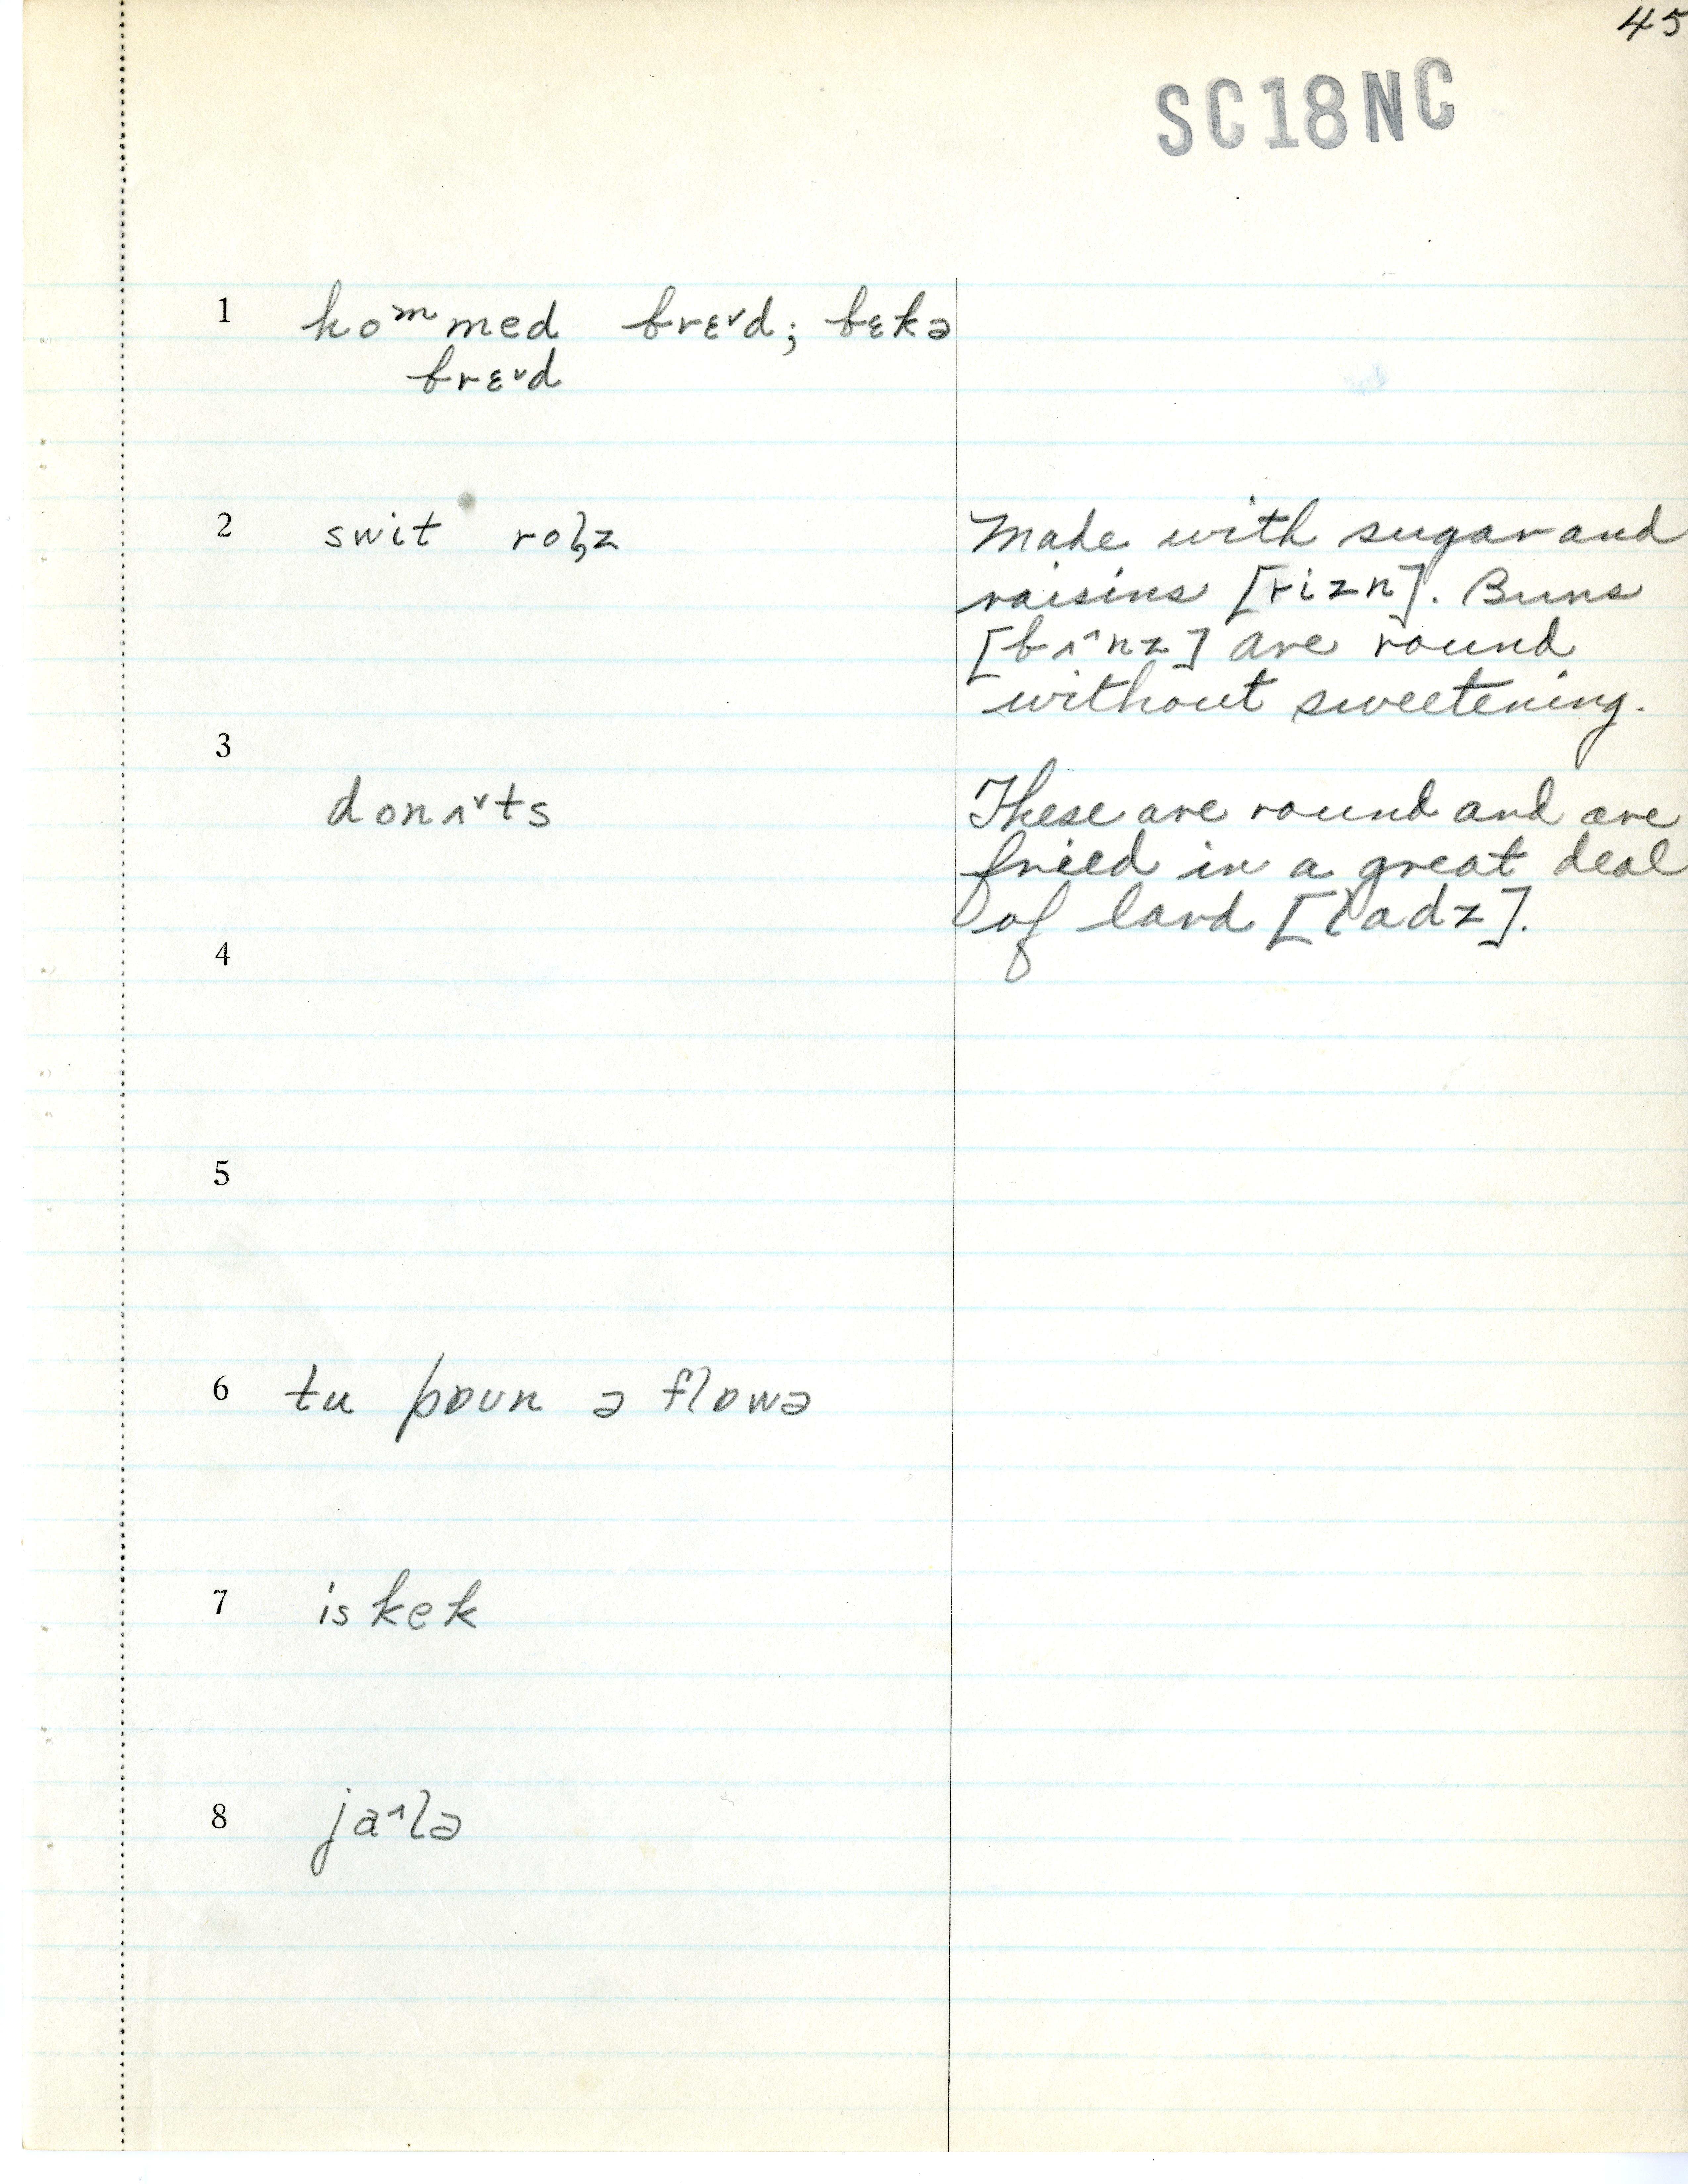 45
SC18NC
1 hoᵐmed brɛ˅d; bɛkə
brɛ˅d
2 swit rolz
Made with sugar and
raisins [rizn]. Buns
[bʌ^nz] are round
without sweetening.
3
donʌ˅ts
These are round and are
fried in a great deal
of lard [ladz].
4
5
6 tu pɒun ə flɒwə
7 iskek
8 ja^lə